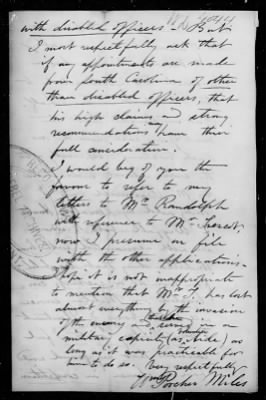 with disabled officers - But
I most respectfully ask that
if any appointments are made
from South Carolina of other
than disabled officers, that
his high claims and strong
recommendations may have their
full consideration.
I would beg of you the
favour to refer to my
letters to Mr Randolph
with reference to Mr
now I presume on file
with the other applications.
I hope it is not inappropriate
to mention that Mr T. has lost
almost everything by the invasion
of the enemy and has served in a
military capacity (as Aide) as
long as it was practicable for
him to do so. Very respectfully
Wm Porcher Miles